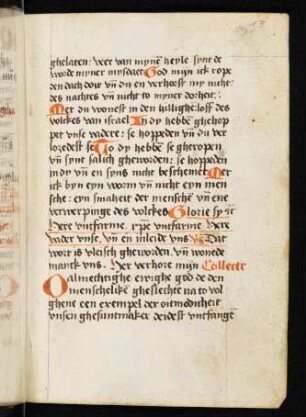 ghelaten: veer van myne heyle synt de
worde myner mysdaet God mijn ick rope
den dach dor vn du en verhorst my nicht:
des nachtes vn nicht to myner dorheit:
Mer du wonest in den hillighe: loff des
volckes van israel In dy hebbe ghehop
pet vnse vadere: se hoppeden vn du ver
lozedest se To dy hebbe se gheropen
vn synt salich gheworden: se hoppeden
in dy vn en syns nicht beschemet Mer
ick byn eyn worm vn nicht eyn men
sche: eyn smaheit der mensche vn ene
verwerpinge des volckes Glorie sy
Here
vader vnse. vn en inleide vns Dat
wort is vleisch gheworden. vn wonede
manck vns. Her verhore mijn Collecte
O almechtighe ewighe god de den
menscheliken gheslechte na to vol
ghene een exempel der oitmodicheit
vnsen ghesuntmaker deidest vntfange